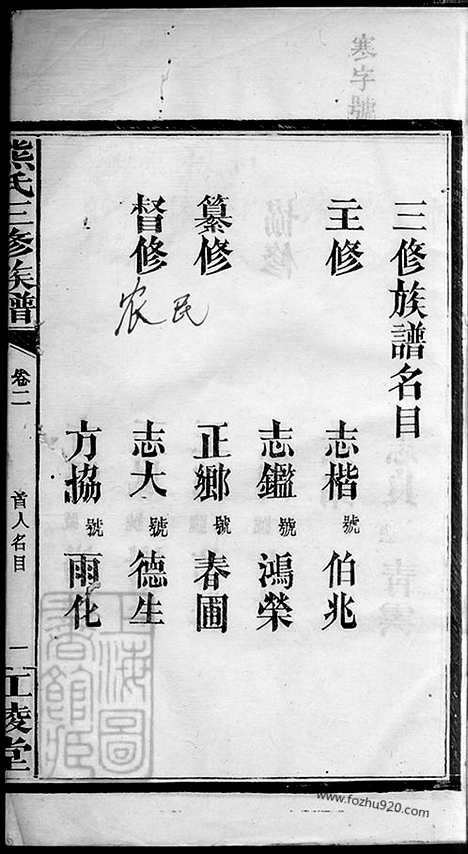 寒字號
三修族譜名目
主修
志楷號伯兆
志鑑號鴻榮
纂修
正鄉號春圃
督修
志大號德生
方協號雨化
农民
熊氏三修族譜
卷二
首人名目
一
江陵堂
上海圖書館藏
www.fozhu920.com